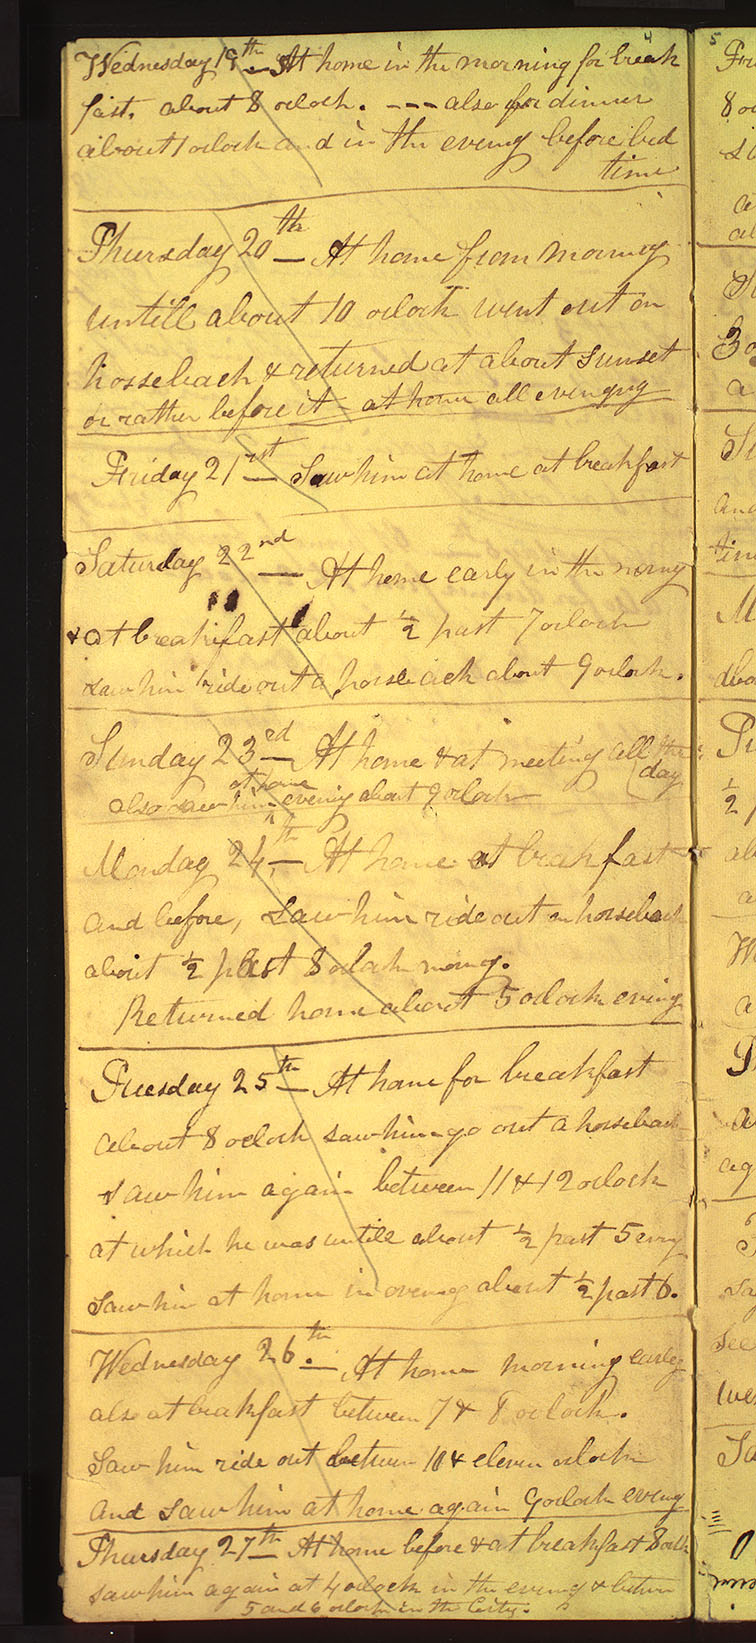 4
Wednesday 19th — At home in the morning for break
fast. about 8 oclock. --- also for dinner
about 1 oclock and in the evenig before bed
time
Thursday 20th — At home from morning
untill about 10 oclock went out on
horseback & returned at about sunset
or rather before it at home all evening
Friday 21rst — Saw him at home at breakfast
Saturday 22nd — At home early in the morng
& at breakfast about ½ past 7 oclock
saw him ride out a horseback about 9 oclock.
Sunday 23rd — At home & at meeting all the
(day
at home
also saw him evenig about 9 oclock
Monday 24th — At home at breakfast
and before, Saw him ride out on horseback
about ½ past 8 oclock mong.
Returned home about 5 oclock evnig
Tuesday 25th — At home for breakfast
about 8 oclock saw him go out a horseback
saw him again between 11 & 12 oclock
at which he was untill about ½ past 5 evng
Saw him at home in evening about ½ past 6.
Wednesday 26.th — At home morning early
also at breakfast between 7 & 8 oclock.
Saw him ride out between 10 & eleven oclock
And saw him at home again 9 oclock evenig
Thursday 27th — At home before & at breakfast 8 oclk
saw him again at 4 oclock in the evenig & between
5 and 6 oclock in the City.
5